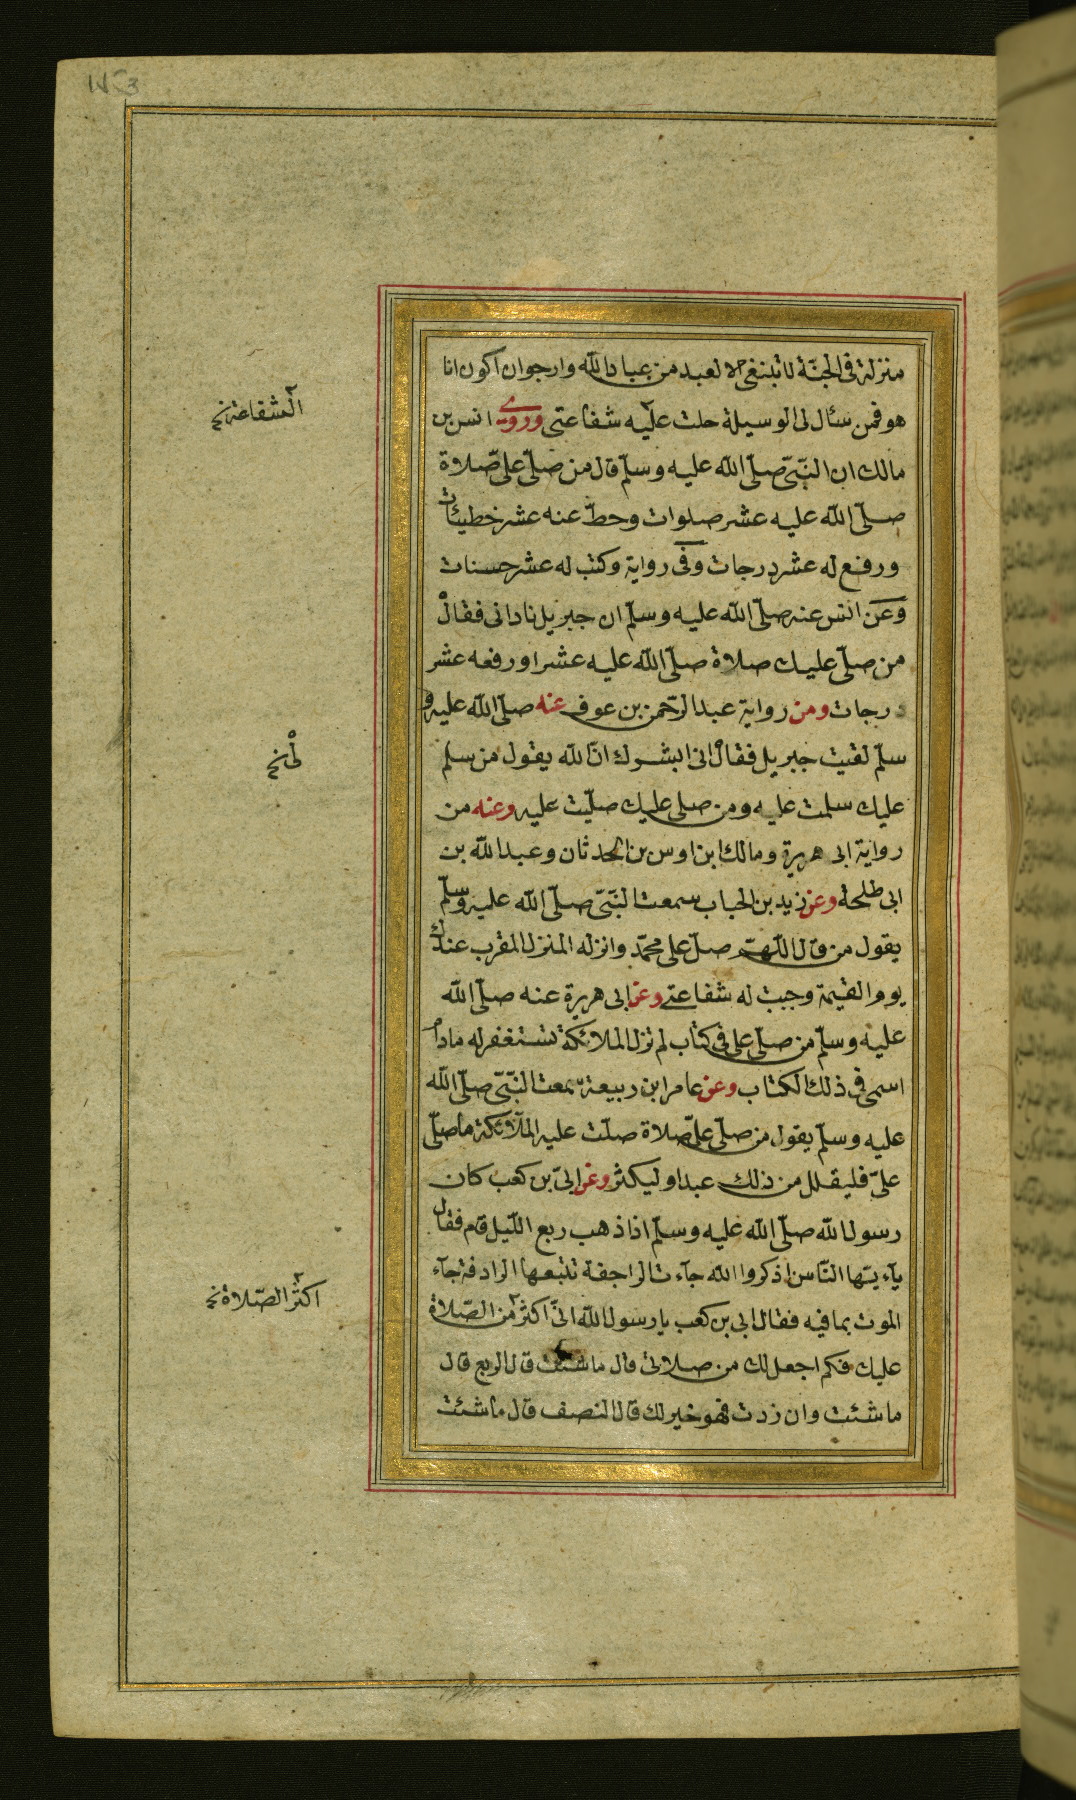 منزلة فى الجنّة لا تبنغى الا لعبد من عباد الله وارجوان اكون انا
هو فمن سئال لى الوسيلة حلت عليه شفاعتى وروى انس بن
مالك ان النبّىّ صلّى الله عليه وسلّم قال من صلّى علىّ صلاة
صلّى الله عليه عشر صلوات وحطّ عنه عشر خطيئات
ورفع له عشر درجات وفى رواية وكتب له عشر حسنات
وعن انس عنه صلّى الله عليه وسلّم ان جبريل نادانى فقال
من صلّى عليك صلاة صلّى الله عليه عشرا ورفعه عشر
درجات ومن رواية عبد الرّحمن بن عوف عنه صلّى الله عليه و
سلّم لقيت جبريل فقال انى ابشرك انّ الله يقول من سلم
عليك سلمت عليه ومن صلى عليك صلّيت عليه وعنه من
رواية ابى هريرة ومالك ابن اوس بن الحدثان وعبد الله بن
ابى طلحة وعن زيد بن الحباب سمعت النبّىّ صلّى الله عليه وسلّم
يقول من قال اللّهمّ صلّ على محمّد وانزله المنزل المقرب عندك
يوم القيمة وجبت له شفاعتى وعن ابى هريرة عنه صلّى الله
عليه وسلّم من صلّى علىّ فى كتاب لم تزل الملائكة تستغفر له مادام
اسمى فى ذلك الكتاب وعن عامر ابن ربيعة سمعت النبّىّ صلّى الله
عليه وسلّم يقول من صلّى علىّ صلاة صلّت عليه الملآئكة ما صلّى
علىّ فليقلل من ذلك عبد او ليكثر وعن ابىّ بن كعب كان
رسول الله صلّى الله عليه وسلّم اذا ذهب ربع اللّيل قام فقال
يآءيّها النّاس اذكروا الله جآءت الراجفة تتبعها الرادفة جآء
الموت بما فيه فقال ابى بن كعب يا رسول الله انّى اكثر من الصّلاة
عليك فكم اجعل لك من صلاتى قال ما شئت قال الربع قال
ما شئت وان زدت فهو خير لك قال النصف قال ما شئت
الشفاعة نخ
لى نخ
اكثر الصّلاة نخ